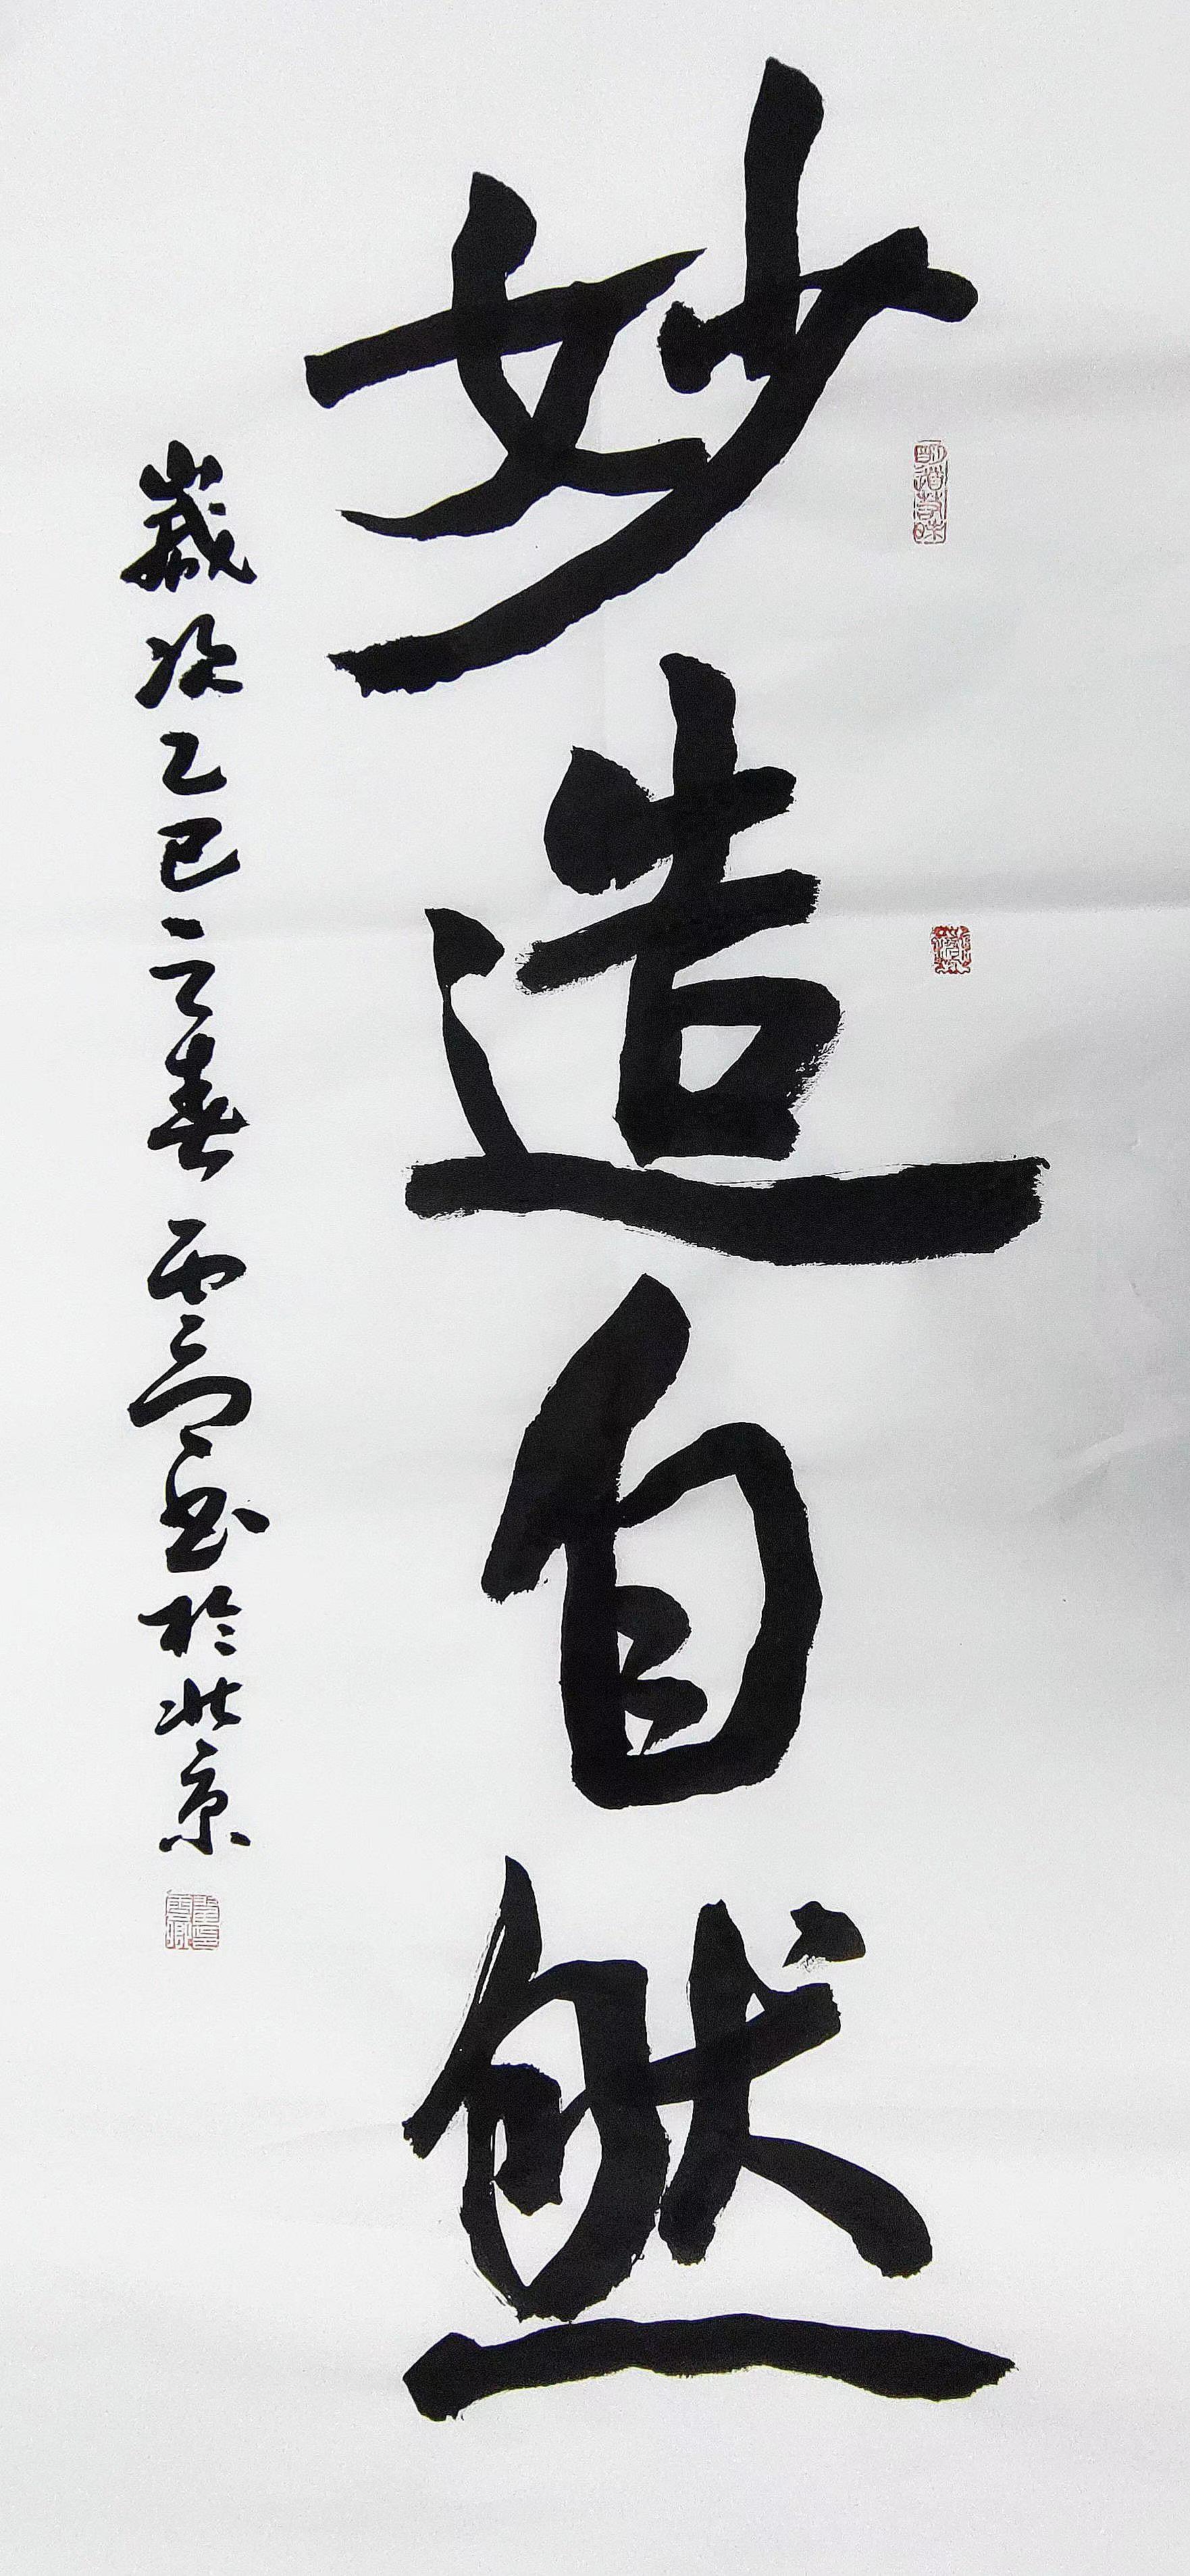 妙造自然
歲次乙巳之春雲書於北京